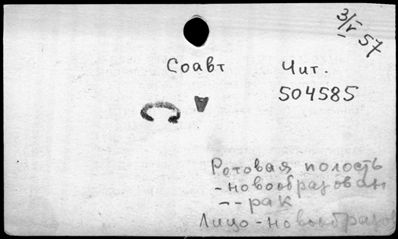 3/V 57
Соавт Чит.
504585
Ротовая полость
-новообразован
--рак
Лицо-новообразов